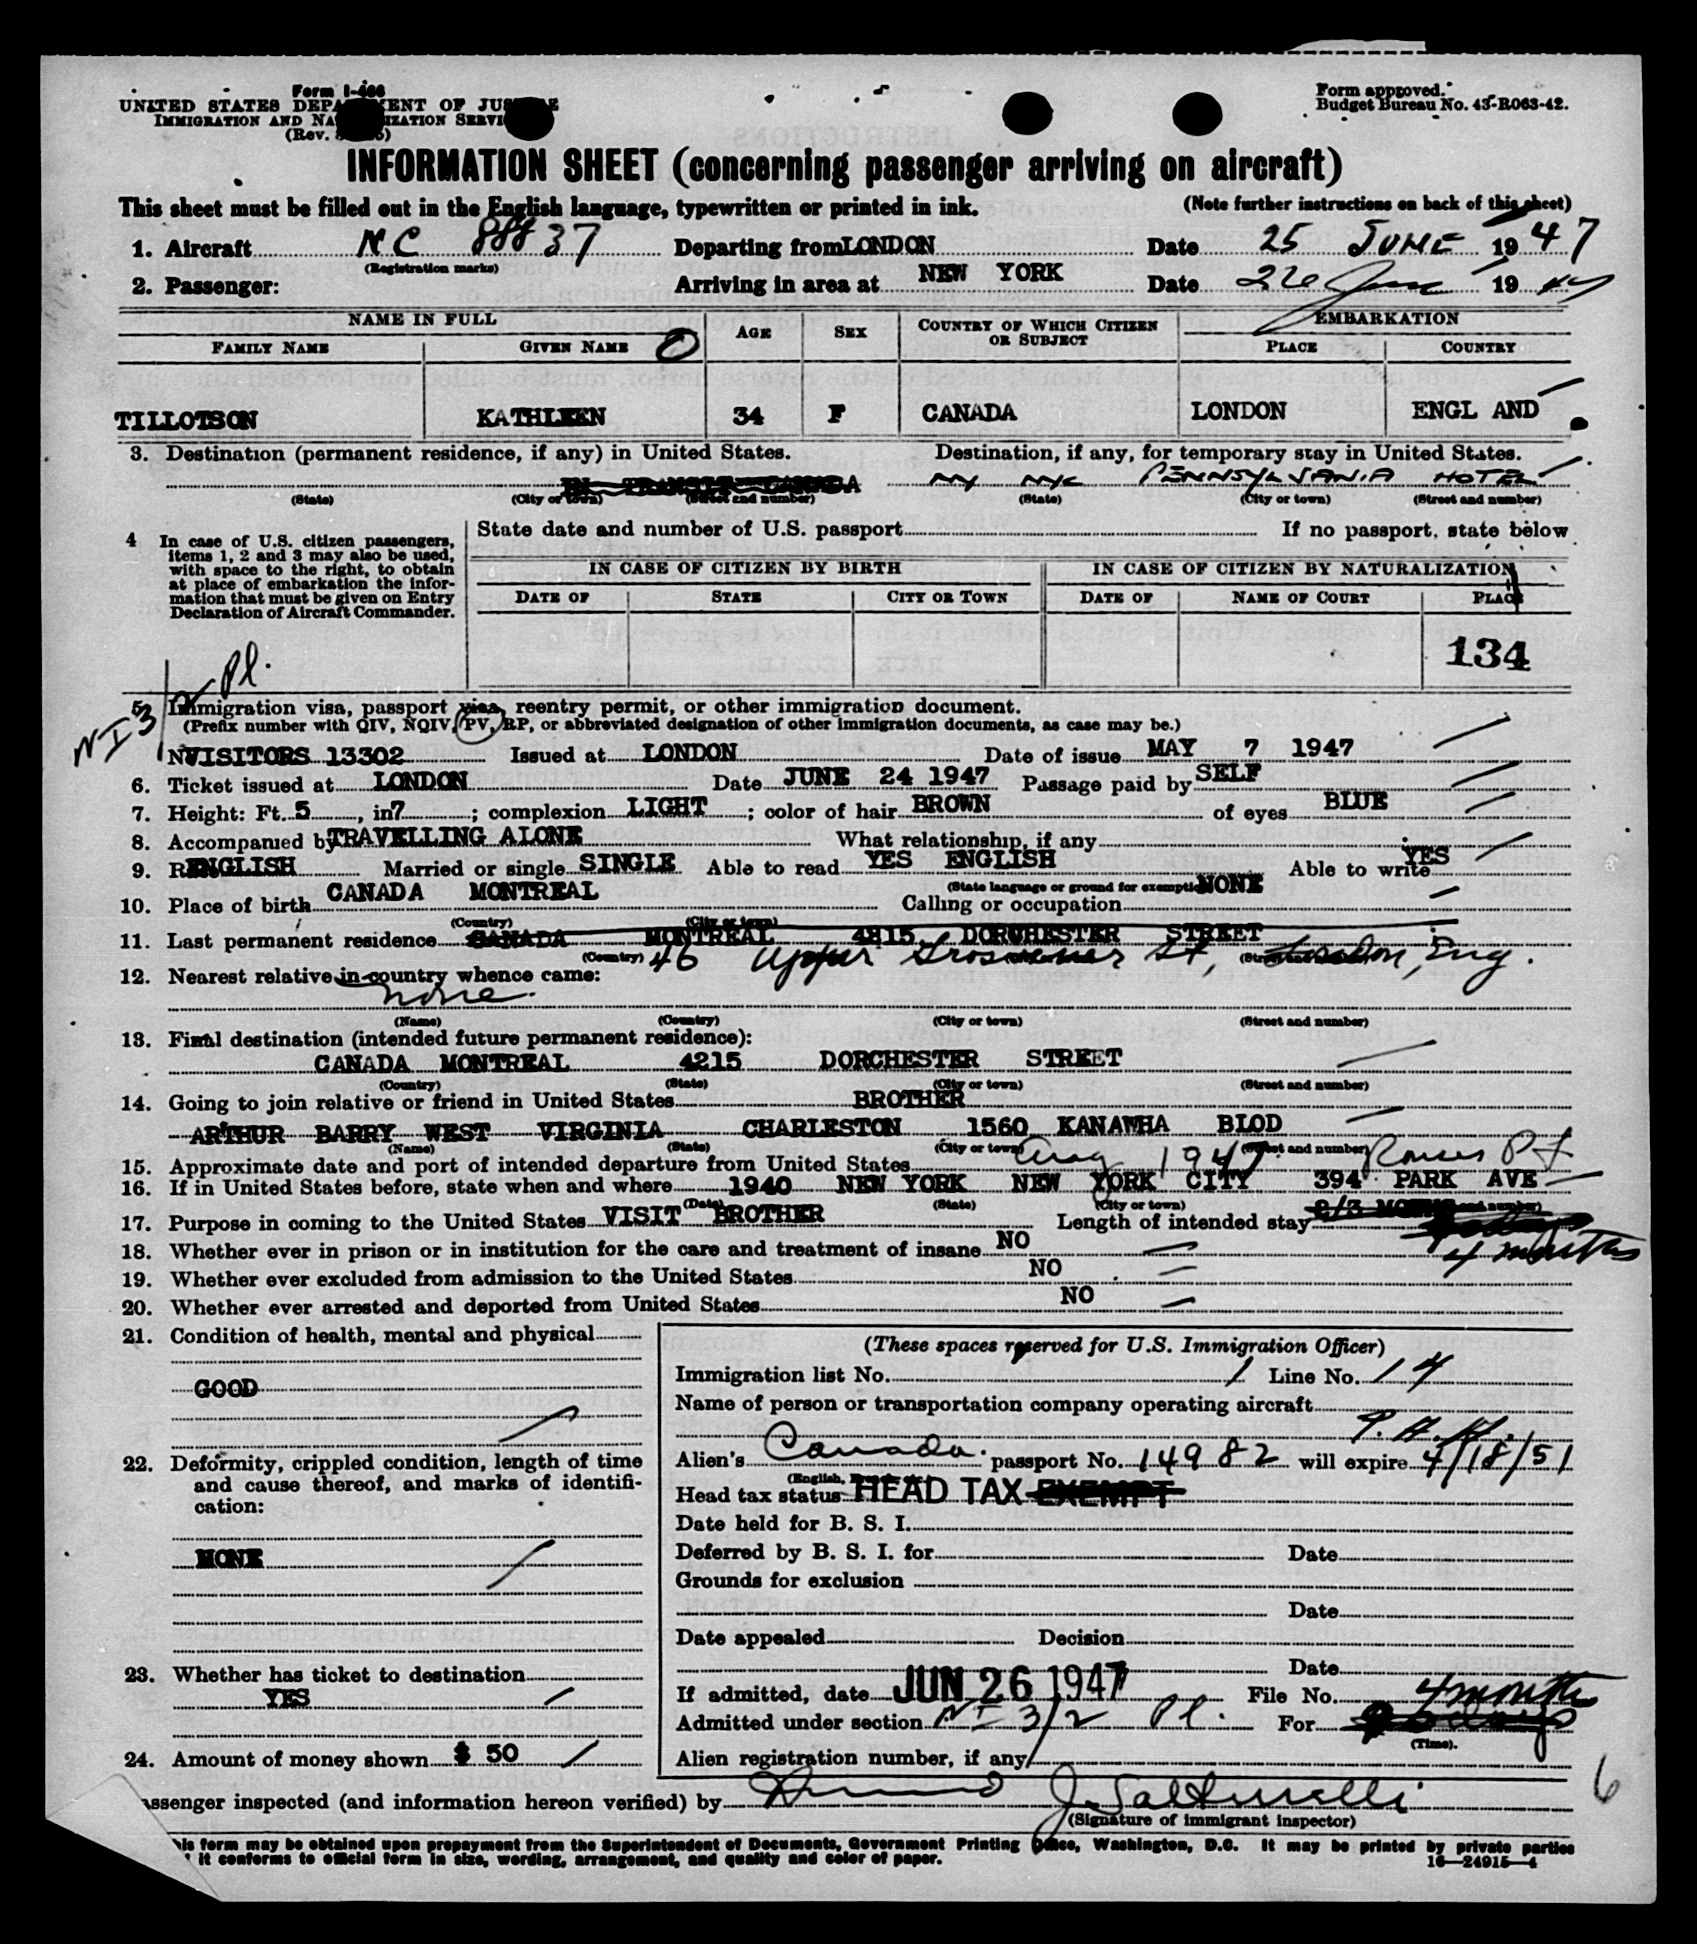 Form I-466
UNITED STATES DEPARTMENT OF JUSTICE
IMMIGRATION AND NATURALIZATION SERVICE
(Rev.
Form approved.
Budget Bureau No. 43-R063-42.
INFORMATION SHEET (concerning passenger arriving on aircraft)
This sheet must be filled out in the English language, typewritten or printed in ink. (Note further instructions on back of this sheet)
1. Aircraft NC 88837 Departing from LONDON Date 25 JUNE 1947
(Registration marks)
2. Passenger: Arriving in area at NEW YORK Date 26 June 1947
NAME IN FULL AGE SEX COUNTRY OF WHICH CITIZEN OR SUBJECT EMBARKATION
FAMILY NAME GIVEN NAME PLACE COUNTRY
TILLOTSON KATHLEEN 34 F CANADA LONDON ENGL AND
3. Destination (permanent residence, if any) in United States. Destination, if any, for temporary stay in United States.
IN TRANSIT CANADA NY NYC PENNSYLVANIA HOTEL
(State) (City or town) (Street and number) (State) (City or town) (Street and number)
4 In case of U.S. citizen passengers, items 1, 2 and 3 may also be used, with space to the right, to obtain at place of embarkation the information that must be given on Entry Declaration of Aircraft Commander.
State date and number of U.S. passport If no passport, state below
IN CASE OF CITIZEN BY BIRTH IN CASE OF CITIZEN BY NATURALIZATION
DATE OF STATE CITY OR TOWN DATE OF NAME OF COURT PLACE
134
NI 3/2 Pl.
5. Immigration visa, passport visa, reentry permit, or other immigration document.
(Prefix number with QIV, NQIV, PV, RP, or abbreviated designation of other immigration documents, as case may be.)
VISITORS 13302 Issued at LONDON Date of issue MAY 7 1947
6. Ticket issued at LONDON Date JUNE 24 1947 Passage paid by SELF
7. Height: Ft. 5, in 7; complexion LIGHT; color of hair BROWN of eyes BLUE
8. Accompanied by TRAVELLING ALONE What relationship, if any
9. R ENGLISH Married or single SINGLE Able to read YES ENGLISH Able to write YES
(State language or ground for exemption)
10. Place of birth CANADA MONTREAL Calling or occupation NONE
(Country) (City or town)
11. Last permanent residence CANADA MONTREAL 4815 DORCHESTER STREET
(Country) 46 Upper Grosvenor St, London, Eng.
12. Nearest relative in country whence came:
none.
(Name) (Country) (City or town) (Street and number)
13. Final destination (intended future permanent residence):
CANADA MONTREAL 4215 DORCHESTER STREET
(Country) (State) (City or town) (Street and number)
14. Going to join relative or friend in United States BROTHER
ARTHUR BARRY WEST VIRGINIA CHARLESTON 1560 KANAWHA BLOD
(Name) (State) (City or town) (Street and number)
15. Approximate date and port of intended departure from United States Aug 1947. Rouses Pt
16. If in United States before, state when and where 1940 NEW YORK NEW YORK CITY 394 PARK AVE
(Date) (State) (City or town) (Street and number)
17. Purpose in coming to the United States VISIT BROTHER Length of intended stay 2/3 MONTHS
4 months
18. Whether ever in prison or in institution for the care and treatment of insane NO
19. Whether ever excluded from admission to the United States NO
20. Whether ever arrested and deported from United States NO
21. Condition of health, mental and physical
GOOD
22. Deformity, crippled condition, length of time and cause thereof, and marks of identification:
NONE
23. Whether has ticket to destination
YES
24. Amount of money shown $ 50
(These spaces reserved for U.S. Immigration Officer)
Immigration list No. 1 Line No. 14
Name of person or transportation company operating aircraft
P.A.A.
Alien's Canada. passport No. 14982 will expire 4/18/51
Head tax status HEAD TAX EXEMPT
Date held for B. S. I.
Deferred by B. S. I. for Date
Grounds for exclusion
Date
Date appealed Decision
Date
If admitted, date JUN 26 1947 File No.
4 months
Admitted under section NI 3/2 Pl. For
(Time).
Alien registration number, if any
6
Passenger inspected (and information hereon verified) by
(Signature of immigrant inspector)
this form may be obtained upon prepayment from the Superintendent of Documents, Government Printing Office, Washington, D.C. It may be printed by private parties
it conforms to official form in size, wording, arrangement, and quality and color of paper.
16—24915-4